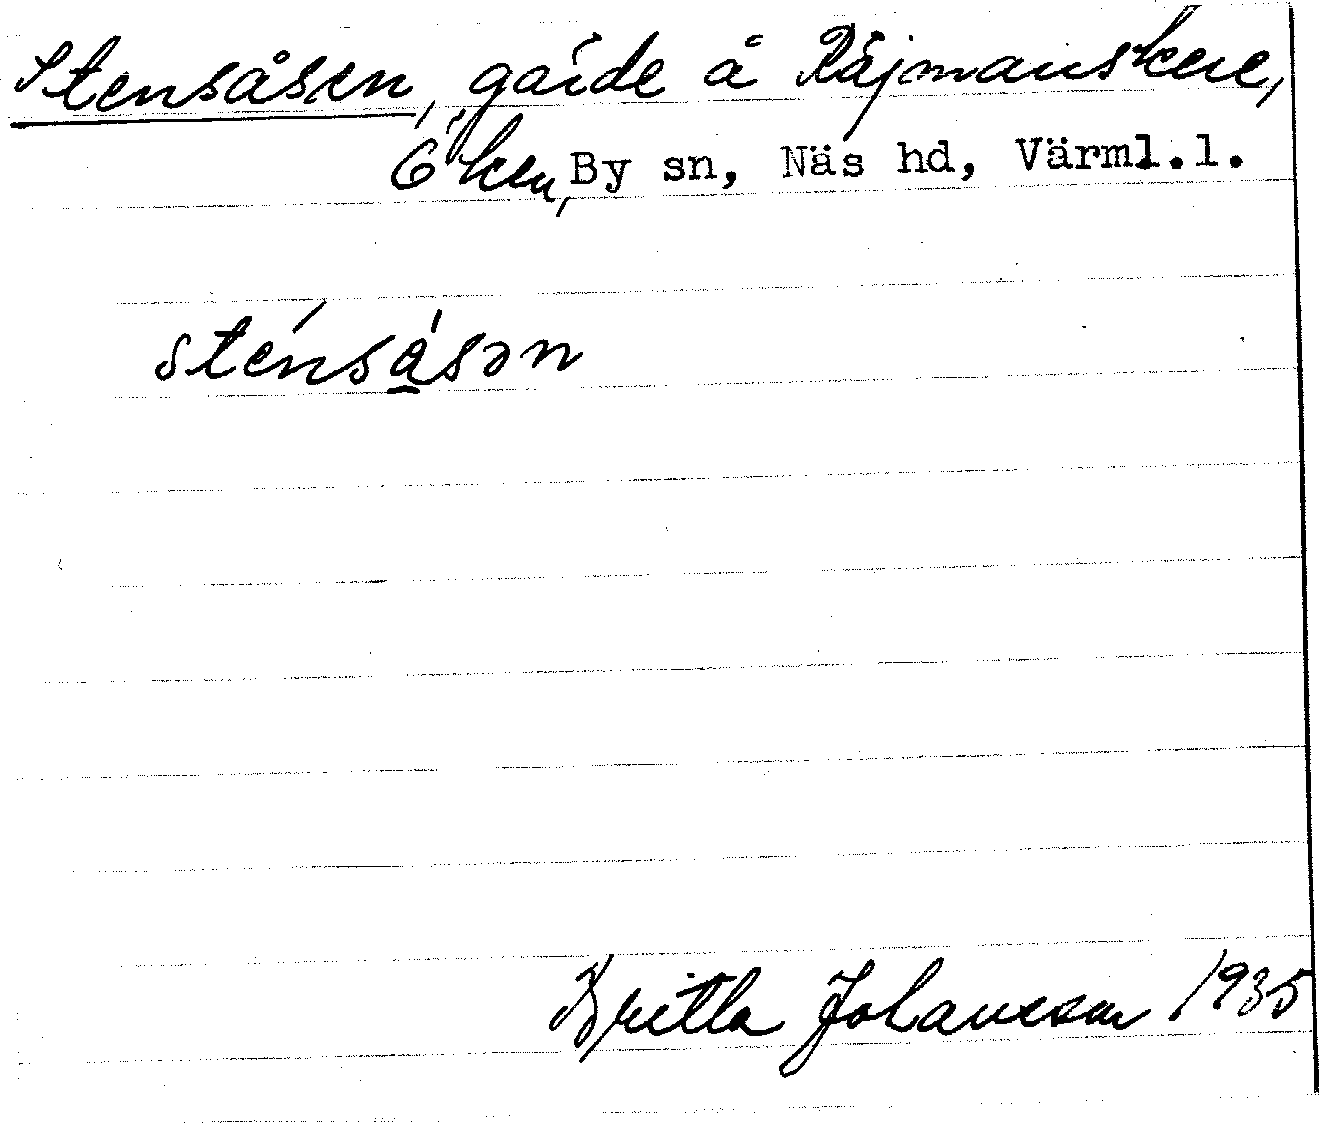 Stensåsen, gärde å Råjmanskere,
Öken, By sn, Näs hd, Värml.l.
sténsásən
Britta Johansson 1935